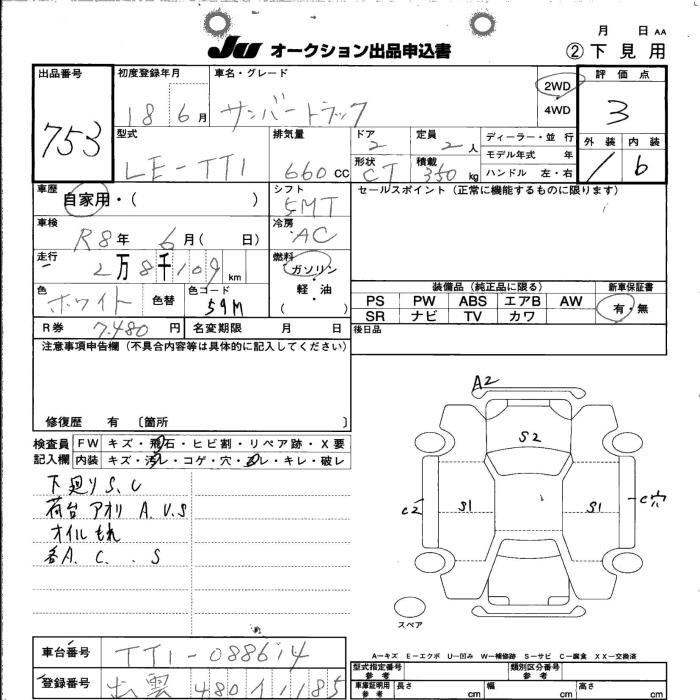 月 日 AA
JU オークション出品申込書 ②下見用
出品番号 753
初度登録年月 18 6月
車名・グレード サンバートラック
2WD
4WD
評価点 3
外装 内装 b
型式 LE-TT1
排気量 660cc
ドア 2
定員 2人
形状 CT
積載 350kg
ディーラー・並行
モデル年式 年
ハンドル 左・右
車歴 自家用・( )
シフト 5MT
セールスポイント(正常に機能するものに限ります)
車検 R8年 6月( 日)
冷房 AC
走行 2万8千109km
燃料 ガソリン・軽・油
( )
色 ホワイト 色替 色コード 59M
装備品(純正品に限る) 新車保証書
PS PW ABS エアB AW 有・無
SR ナビ TV カワ
R券 7.480円 名変期限 月 日
後日品
注意事項申告欄(不具合内容等は具体的に記入してください)
修復歴 有 〔箇所 〕
検査員 FW キズ・飛石・ヒビ割・リペア跡・X要
記入欄 内装 キズ・汚レ・コゲ・穴・ヌレ・キレ・破レ
下廻りS.C
荷台アオリ A.U.S
オイルもれ
A.C.S
A2
S2
C2 S1 S1 C穴
スペア
A－キズ E－エクボ U－凹み W－補修跡 S－サビ C－腐食 XX－交換済
車台番号 TT1-088614
型式指定番号 参考
類別区分番号 参考
登録番号 出雲 480 185
車庫証明用 参考 長さ cm 幅 cm 高さ cm